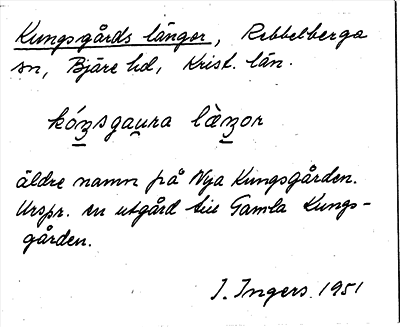 Kungsgårds längor, Rebbelberga
sn, Bjäre hd, Krist. län.
kóŋsgaura lὰŋor
äldre namn på Nya Kungsgården.
Urspr. en utgård till Gamla Kungs-
gården.
I. Ingers 1951